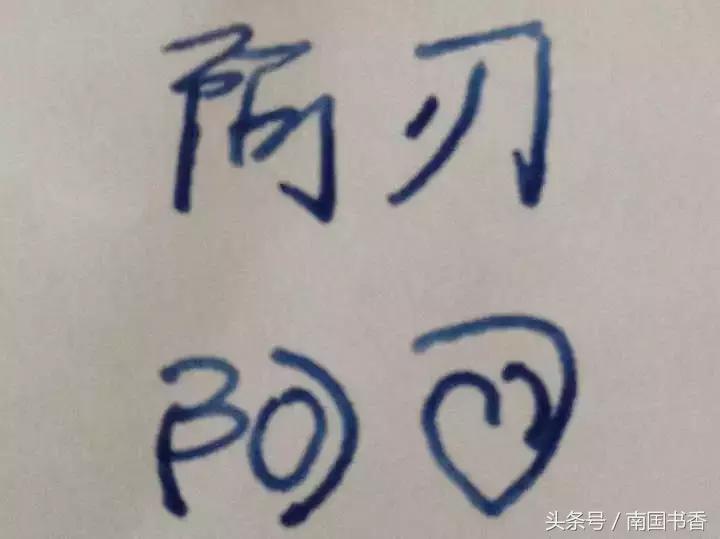 阿刃
阿
头条号 / 南国书香